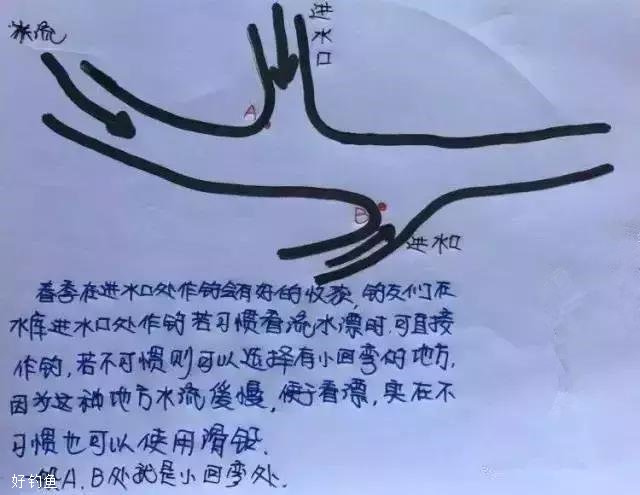 水流
进水口
A
B
进水口
春季在进水口处作钓会有好的收获，钓友们在
水库进水口处作钓若习惯看流水漂时，可直接
作钓，若不习惯则可以选择有小回弯的地方，
因为这种地方水流缓慢，便于看漂，实在不
习惯也可以使用滑铅．
A、B处就是小回弯处．
好钓鱼